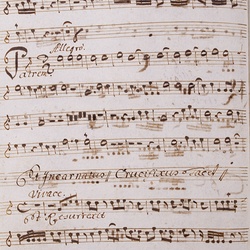 Allegro
Patrem
Et Incarnatus Crucifixus tacet
Vivace
Et Resurrexit